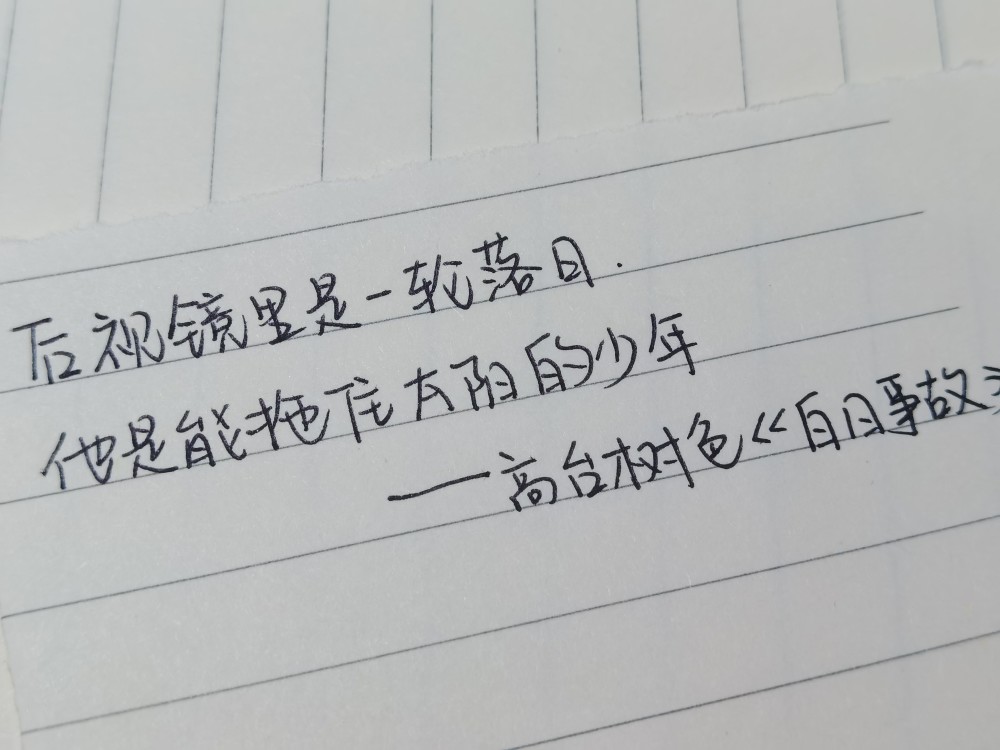 后视镜里是一轮落日.
他是能拖住太阳的少年
——高台树色《白日事故》